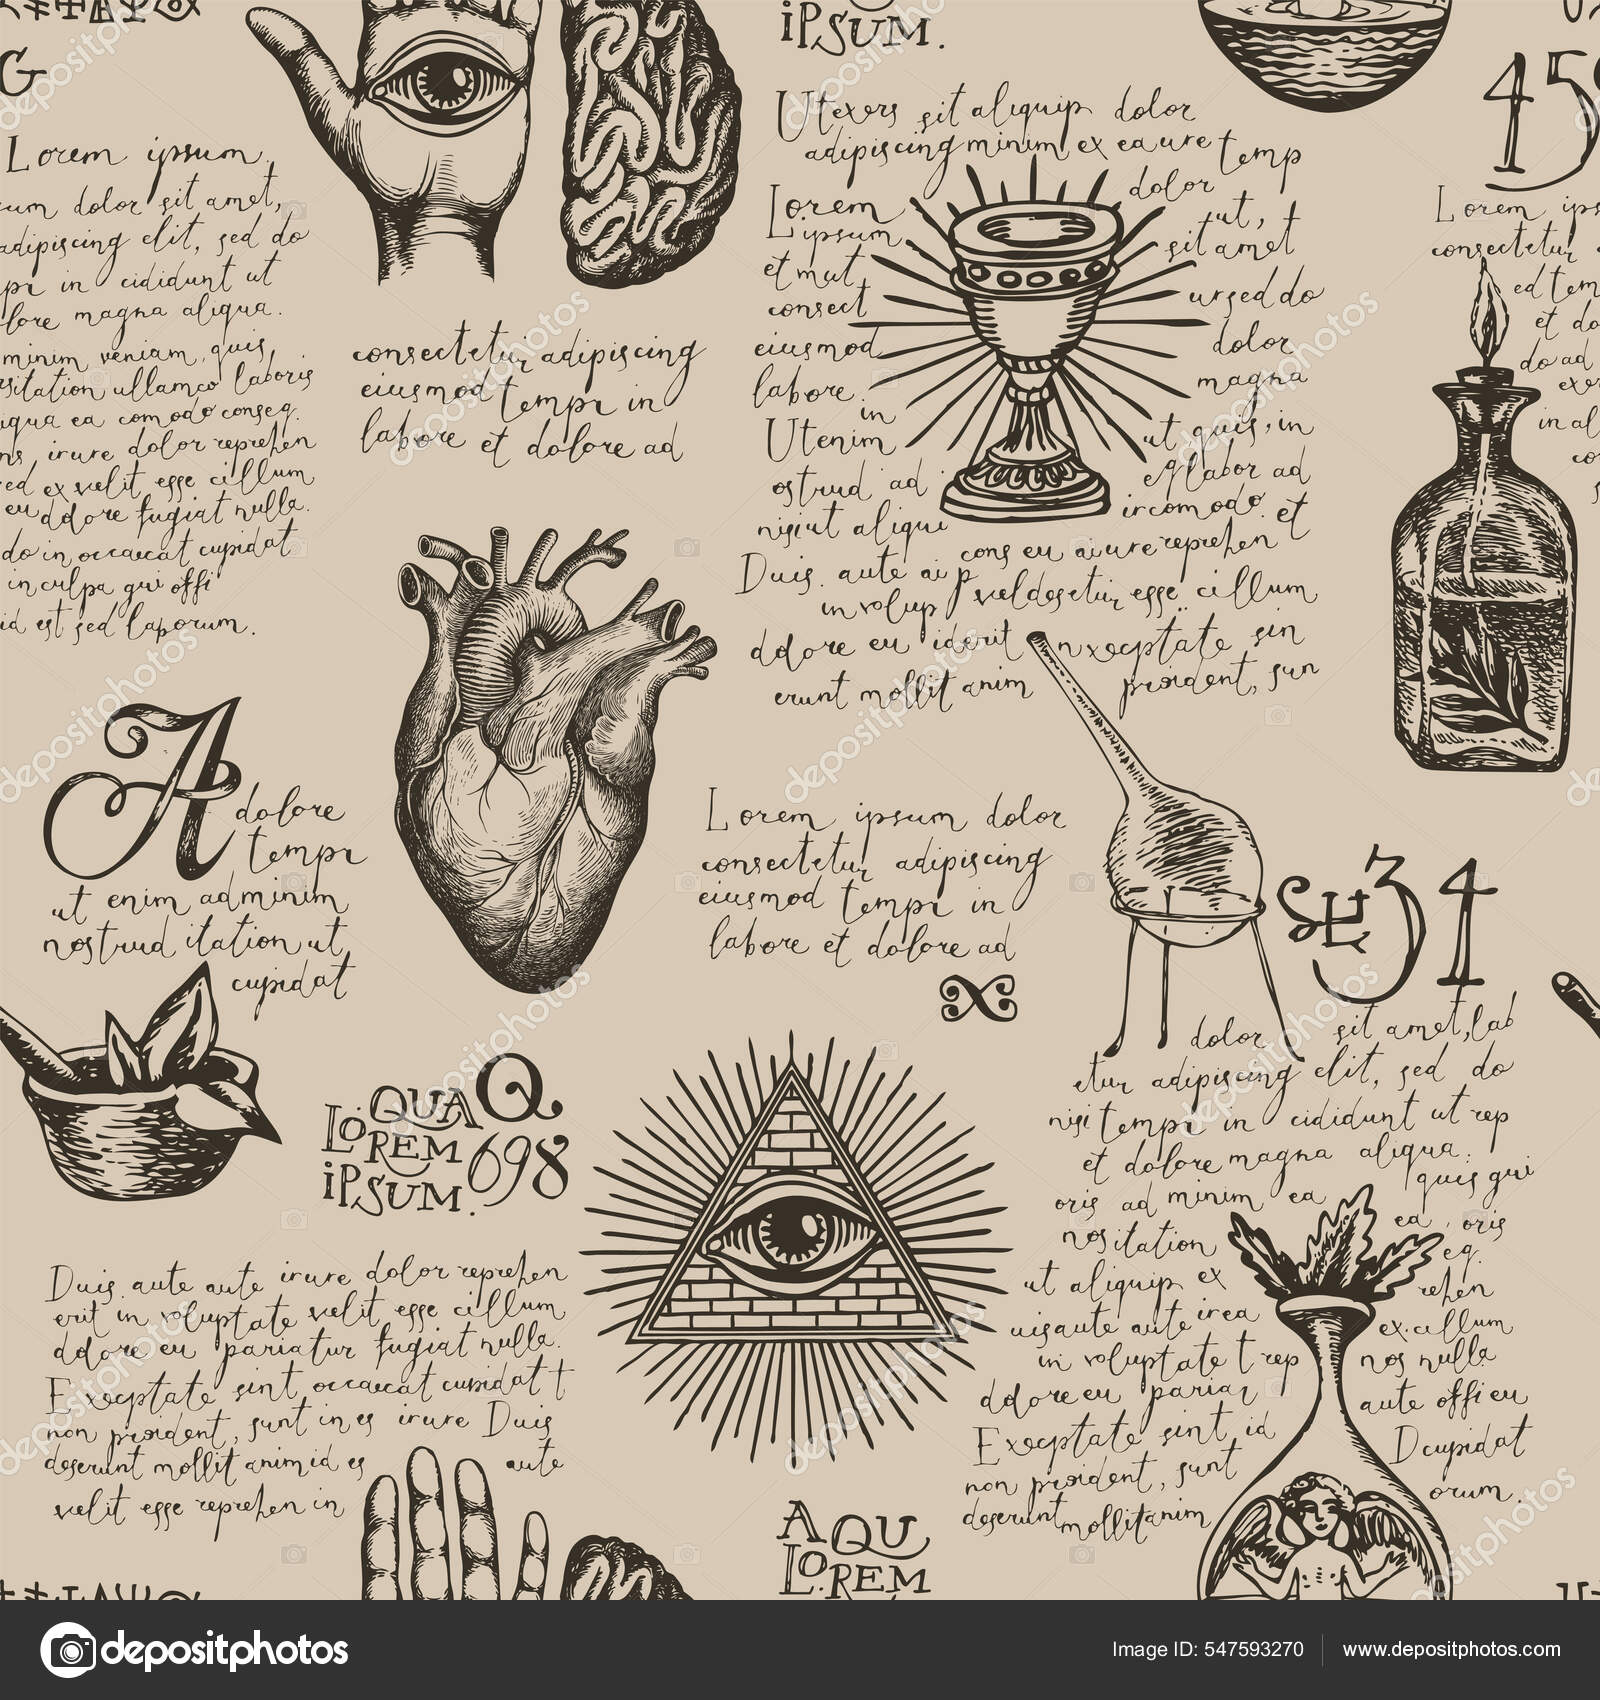 G
Lorem ipsum
cum dolor sit amet,
adipiscing elit, sed do
in cididunt ut
lore magna aliqua.
minim veniam, quis
sitation ullamco laboris
iqua ea comodo conseq.
ns, irure dolor reprehen
sed ex velit esse cillum
eu ddore fugiat nulla.
do in, occaecat cupidat
in culpa qui offi
id est sed laporum.
consectetur, adipiscing
eiusmod tempr in
labore et dolore ad
iPSUM.
Utexers sit aliquip dolor
adipiscing minim ex ea ure temp
dolor
Lorem
ipsum
et mut
consect
eiusmod
labore.
in
Utenim
ostrud ad
nisi ut aliqui
ut, t
sit amet
ur sed do
dolor
magna
ut quis, in
labor ad
ircomodo. et
Duis. aute ai p cons eu aiure reprehen t
in volup veldesetur esse cillum
ddore eu iderit nxecptate sin
erunt mollit anim proident, sun
45
Lorem ips
consectetur
ed tem
et do
do ad
exer
in al
co
A dolore
tempr
ut enim ad minim
nostrud itation ut
cupidat
Lorem ipsum dolor
consectetur adipiscing
eiusmod tempr in
labore et dolore ad
34
dolor sit amet, lab
etur adipiscing elit, sed do
nisi tempr in cididunt ut rep
et dolore magna aliqua.
quis qui
oris ad minim ea
ea, oris
nos itation
eq.
ut aliquip ex
rehen
uis aute aute irea
ex. cillum
in voluptate t rep
nos nulla
ddore eu pariar
aute offi eu
Execptate sint id
Dcupidat
non proident, sunt
orum.
deserunt mollit anim
QUA Q
LOREM 698
iPSUM.
Duis. aute aute irure dolor reprehen
erit in voluptate velit esse cillum
ddore eu pariatur fugiat nulla.
Execptate sint occaecat cupidat t
non proident, sunt in es irure Duis
deserunt mollit anim id es aute
velit esse reprehen in
A QU
LOREM
depositphotos
Image ID: 547593270
www.depositphotos.com